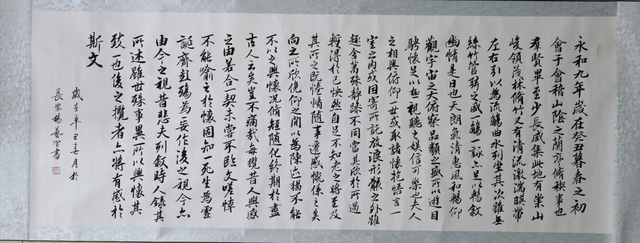 永和九年歲在癸丑暮春之初
會于會稽山陰之蘭亭脩稧事也
群賢畢至少長咸集此地有崇山
峻領茂林脩竹又有清流激湍暎帶
左右引以為流觴曲水列坐其次雖無
絲竹管弦之盛一觴一詠亦足以暢敘
幽情是日也天朗氣清惠風和暢仰
觀宇宙之大俯察品類之盛所以遊目
騁懷足以極視聽之娛信可樂也夫人
之相與俯仰一世或取諸懷抱悟言一
室之內或因寄所託放浪形骸之外雖
趣舍萬殊靜躁不同當其欣於所遇
暫得於己怏然自足不知老之將至及
其所之既惓情隨事遷感慨係之矣
向之所欣俛仰之間以為陳迹猶不能
不以之興懷況脩短隨化終期於盡
古人云矣豈不痛哉每攬昔人興感
之由若合一契未嘗不臨文嗟悼
不能喻之於懷固知一死生為虛
誕齊彭殤為妄作後之視今亦
由今之視昔悲夫列敘時人錄其
所述雖世殊事異所以興懷其
致一也後之攬者亦將有感於
斯文
歲在辛丑月於
長安楊書